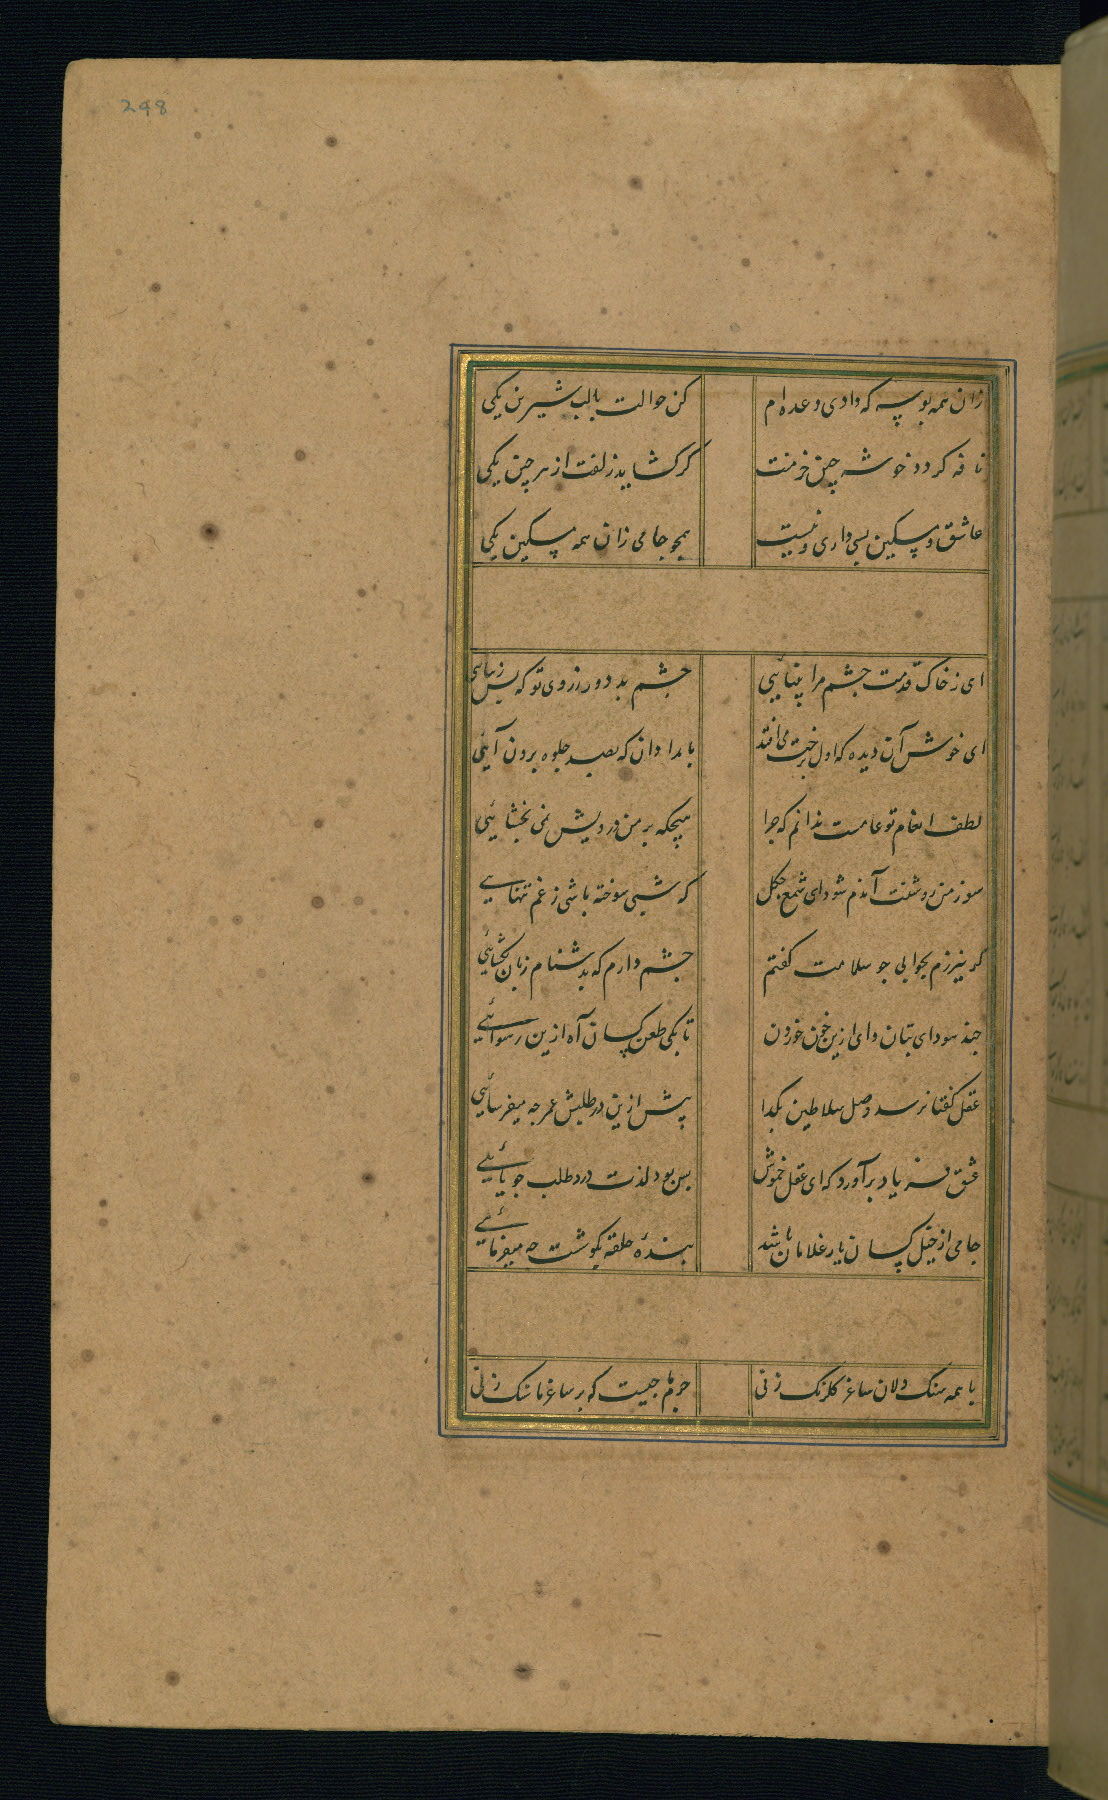 298
زان همه بوسه که دادی وعده ام کن حوالت با لب شیرین یکی
نافه کردد خوشه چین خرمنت کر کشاید زلفت از هر چین یکی
عاشق و مسکین بسی داری و نیست همچو جامی زان همه مسکین یکی
ای ز خاک قدمت چشم مرا بینایی چشم بد دور ز روی تو که بس زیبایی
ای خوش آن دیده که اول برخت می افتد بامدادان که بصد جلوه برون آیی
لطف انعام تو عامست ندانم که چرا هیچکه بر من درویش نمی بخشایی
سوز من روشنت آندم شود ای شمع چکل که شبی سوخته باشی ز غم تنهایی
کر نیرزم بجوابی چو سلامت کفتم چشم دارم که بدشنام زبان بکشایی
چند سودای بتان وای ازین خون خوردن تا بکی طعن کسان آه ازین رسوایی
عقل کفتا نرسد وصل سلاطین بکدا پیش ازین در طلبش عمر چه میفرسایی
عشق فریاد برآورد که ای عقل خموش بس بود لذت درد طلب جویایی
جامی از خیل کسان یار غلامان باشد بندهٔ حلقه بکوشت چه میفرمایی
با همه سنک دلان ساغر کلرنک زنی جرم ما چیست که بر ساغر ما سنک زنی